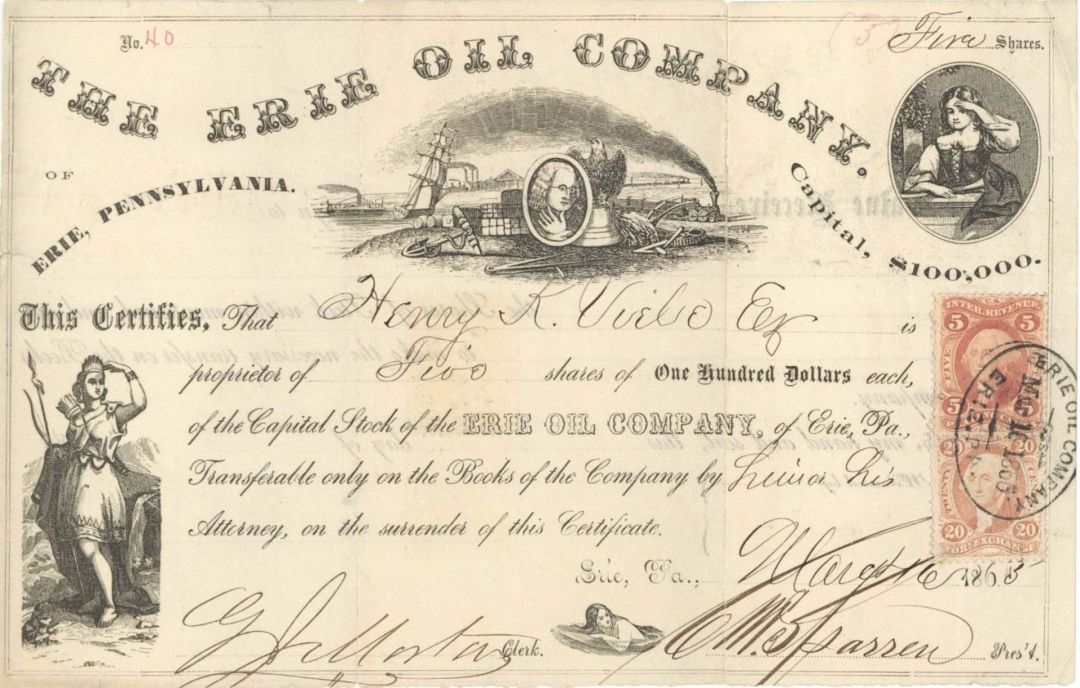 No. 40
(5) Five Shares.
THE ERIE OIL COMPANY.
OF
ERIE, PENNSYLVANIA.
Capital, $100,000.
This Certifies, That Henry K. Viele Esq is
proprietor of Five shares of One Hundred Dollars each,
of the Capital Stock of the ERIE OIL COMPANY, of Erie, Pa.,
Transferable only on the Books of the Company by him or his
Attorney, on the surrender of this Certificate.
Erie, Pa., March 16 1865
Clerk.
Pres't.
U.S. INTER. REVENUE
5 5
FIVE
20 20
TWENTY
20 20
FOR. EXCHANGE
ERIE OIL COMPANY.
Mar 1 1865
ERIE, PA.